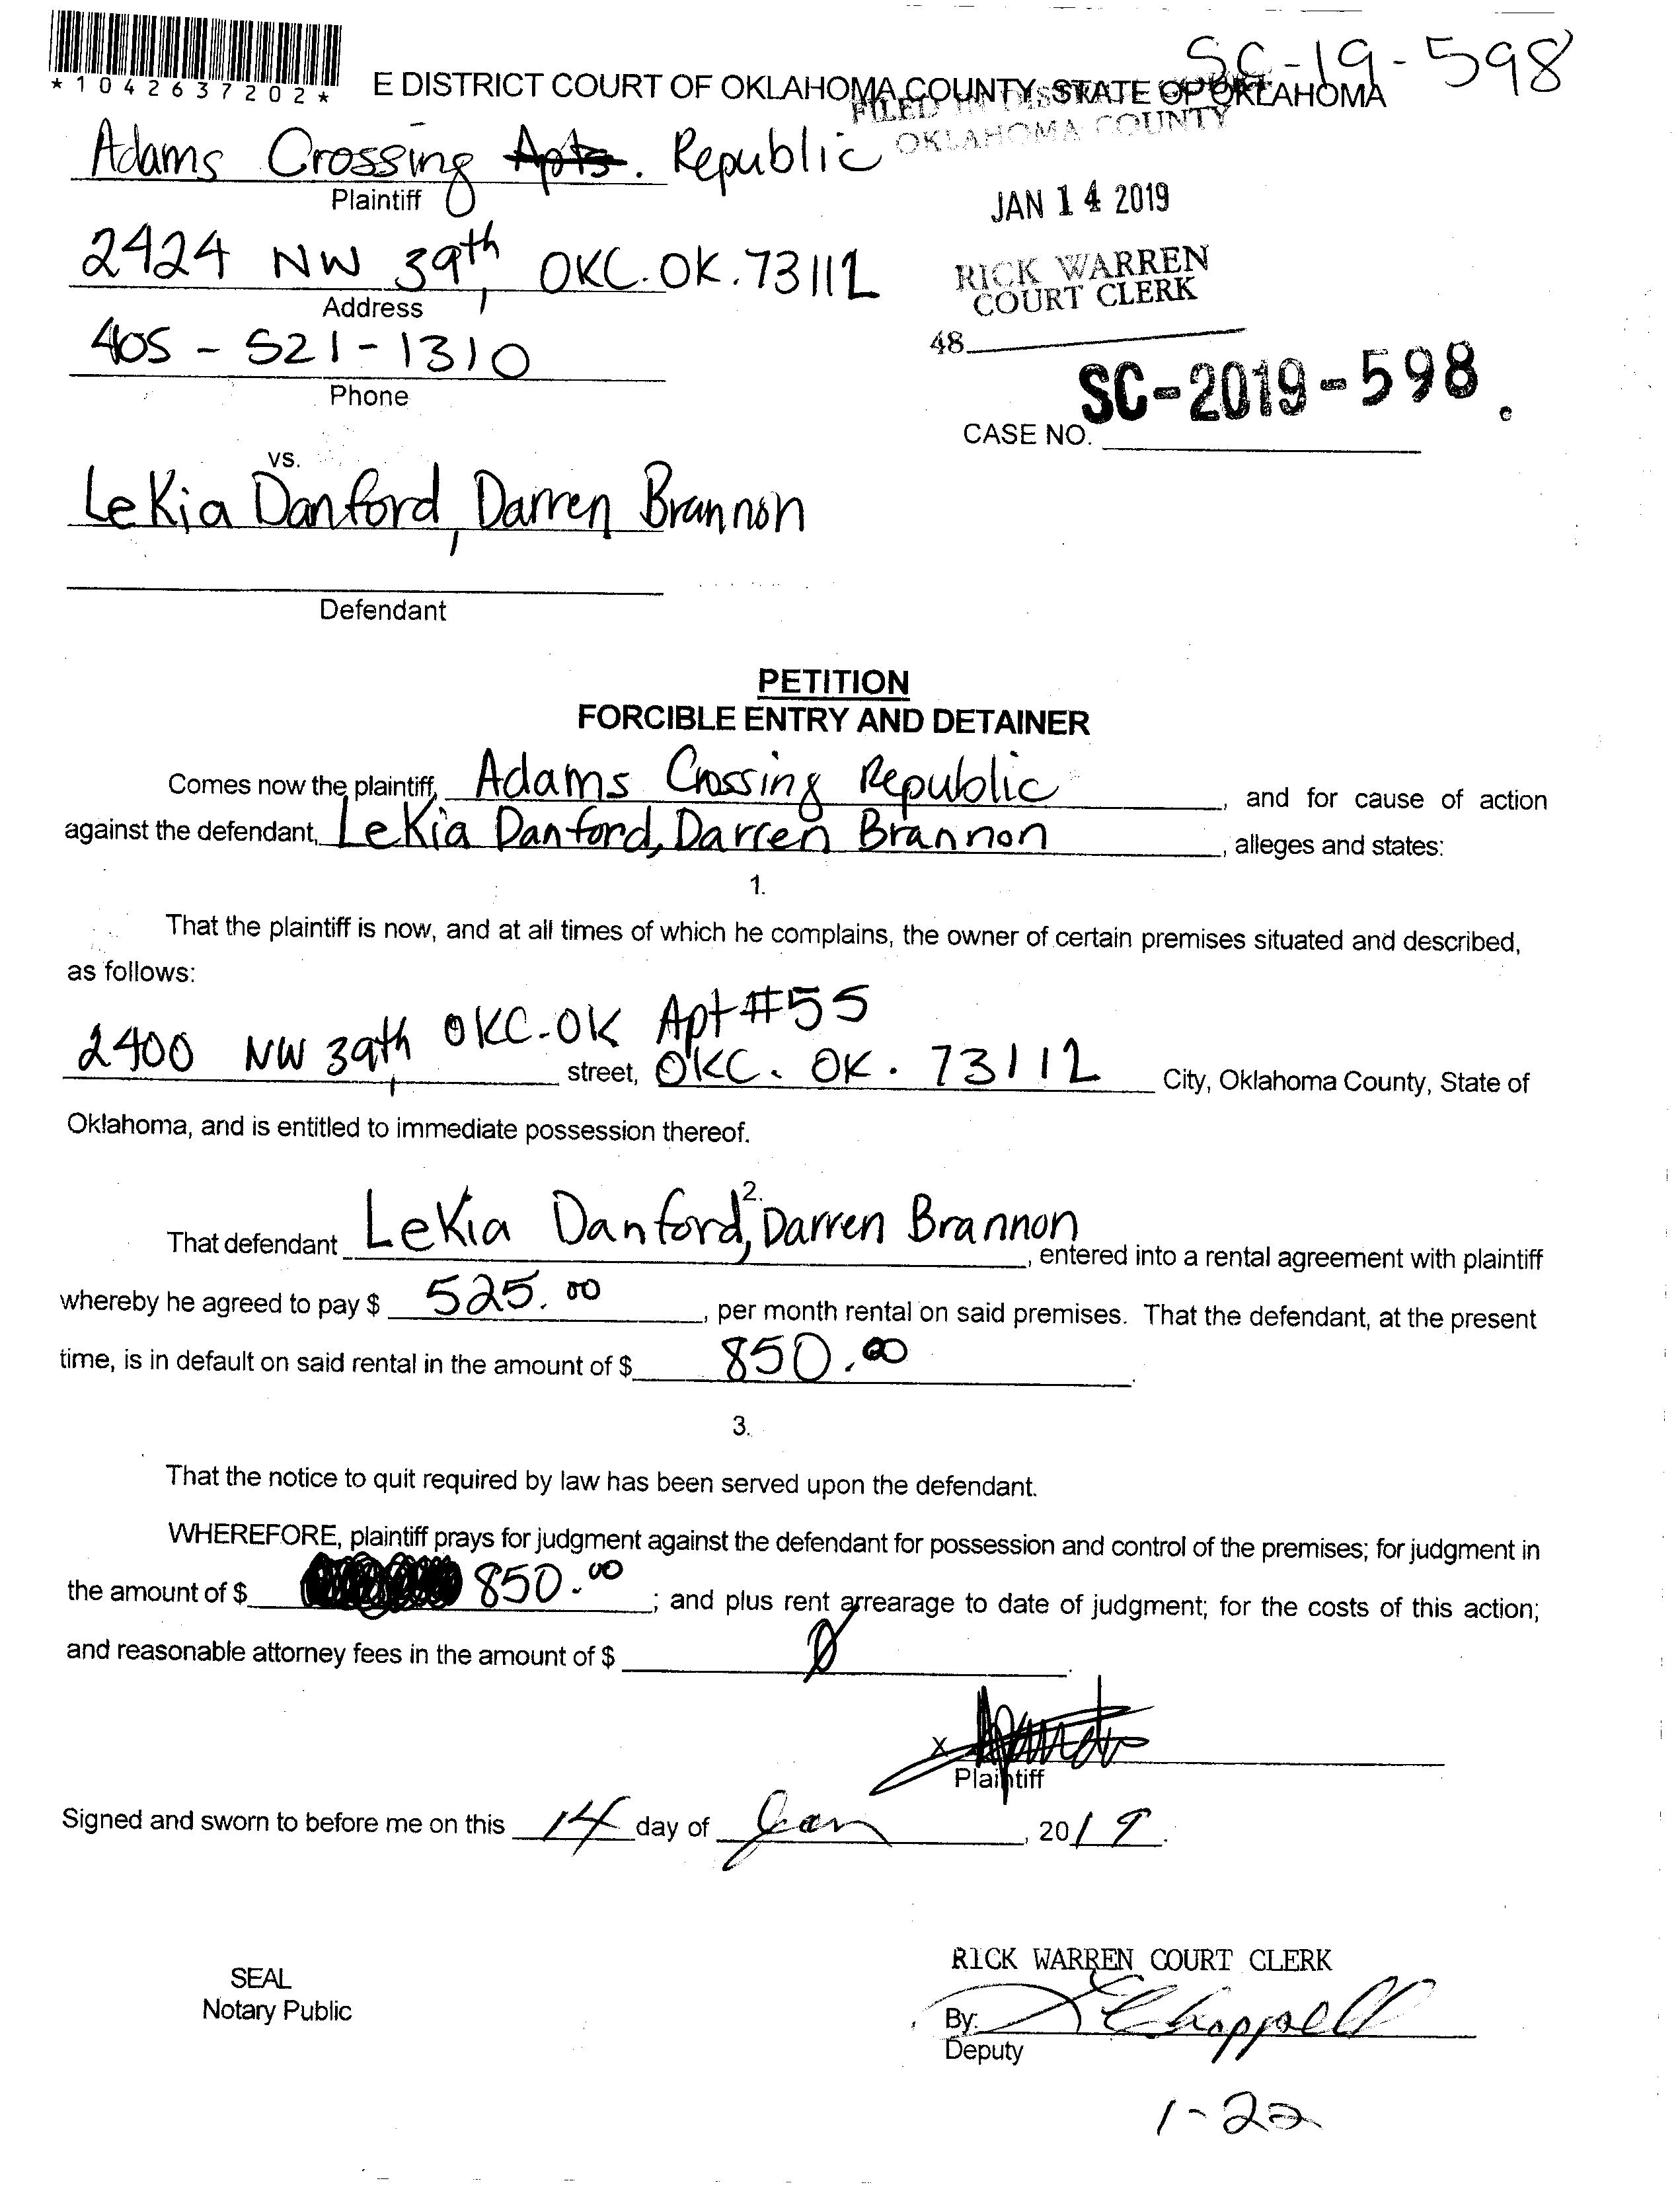 SC-19-598
*1042637202*
E DISTRICT COURT OF OKLAHOMA COUNTY, STATE OF OKLAHOMA
FILED IN DISTRICT COURT
OKLAHOMA COUNTY
Adams Crossing Apts. Republic
Plaintiff
JAN 14 2019
2424 NW 39th, OKC. OK. 73112
Address
RICK WARREN
COURT CLERK
405-521-1310
Phone
48
SC-2019-598.
CASE NO.
vs.
LeKia Danford, Darren Brannon
Defendant
PETITION
FORCIBLE ENTRY AND DETAINER
Comes now the plaintiff, Adams Crossing Republic, and for cause of action
against the defendant, LeKia Danford, Darren Brannon, alleges and states:
1.
That the plaintiff is now, and at all times of which he complains, the owner of certain premises situated and described,
as follows:
2400 NW 39th, OKC-OK Apt #55
street, OKC. OK. 73112 City, Oklahoma County, State of
Oklahoma, and is entitled to immediate possession thereof.
2.
That defendant LeKia Danford, Darren Brannon, entered into a rental agreement with plaintiff
whereby he agreed to pay $ 525.00, per month rental on said premises. That the defendant, at the present
time, is in default on said rental in the amount of $ 850.00.
3.
That the notice to quit required by law has been served upon the defendant.
WHEREFORE, plaintiff prays for judgment against the defendant for possession and control of the premises; for judgment in
the amount of $ 850.00; and plus rent arrearage to date of judgment; for the costs of this action;
and reasonable attorney fees in the amount of $ Ø.
X
Plaintiff
Signed and sworn to before me on this 14 day of Jan, 2019.
RICK WARREN COURT CLERK
SEAL
Notary Public
By: Chappell
Deputy
1-22